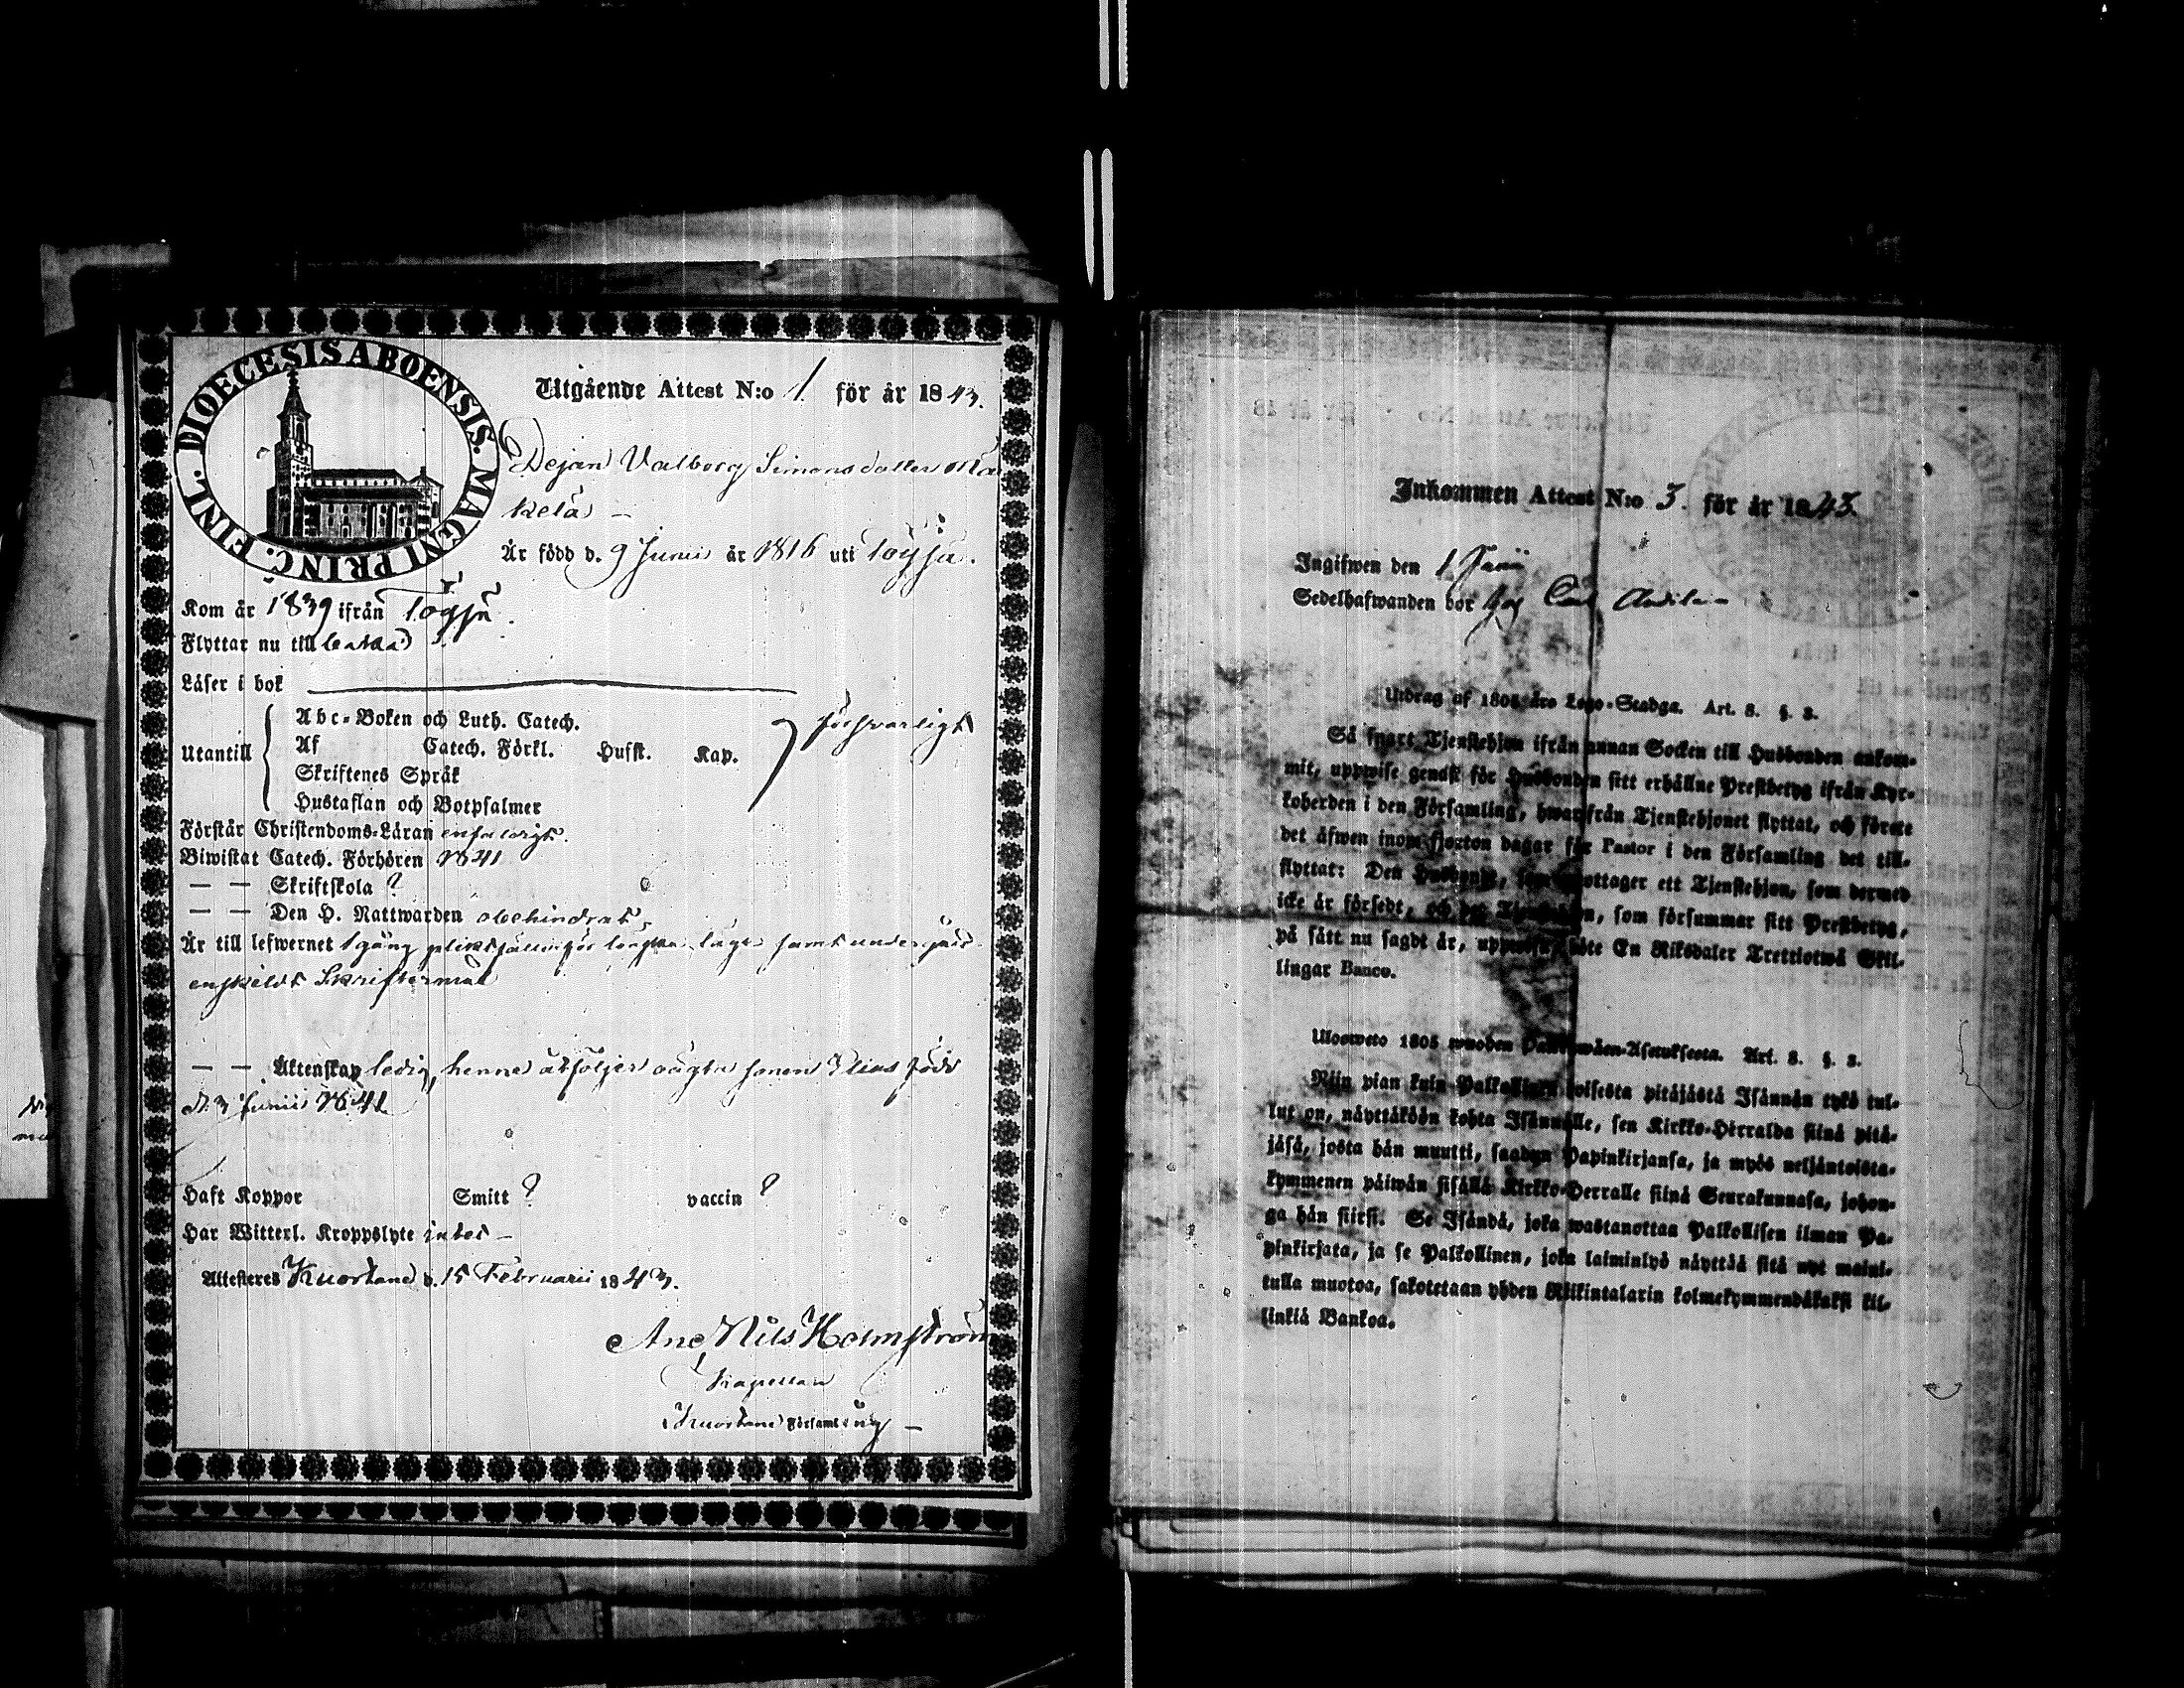 DIOECESIS ABOENSIS. MAGNI PRINC. FINL.
Utgående Attest N:o 1. för år 1843.
Pejan Valborg Simonsdotter Mä
kelä —
Är född d. 9 Junii år 1816 uti Töysä.
Kom år 1839 ifrån Töysä.
Flyttar nu till
Läser i bok
Utantill
Abc-Boken och Luth. Catech.
Af Catech. Förkl. Husft. Kap.
Skriftenes Språk
Hustaflan och Botpsalmer
försvarligt
Förstår Christendoms-Läran enfaldigt.
Biwistat Catech. Förhören 1841
— — Skriftskola ?
— — Den H. Nattwarden obehindrat
Är till lefwernet 1 gång pliktfälld för samt undergått
enskildt Skriftermål
— — Äktenskap ledig, henne åtföljer oägta sonen Elias född
d. 3 Junii 1841
Haft Koppor Smitt ? vaccin ?
Har Witterl. Kroppslyte intet —
Attesteras Kuortane d. 15 Februarii 1843.
Nils Holmström
Kapellan
Kuortane Församling —
Inkommen Attest N:o 3. för år 1843.
Ingifwen den 1 Junii
Sedelhafwanden bor hos
Utdrag af 1805 års Lego-Stadga. Art. 8. §. 3.
Så snart Tjenstehjon ifrån annan Socken till Husbonden ankom-
mit, uppwise genast för Husbonden sitt erhållne Prestbetyg ifrån Kyr-
koherden i den Församling, hwarifrån Tjenstehjonet flyttat, och förete
det äfwen inom fjorton dagar för Pastor i den Församling det till-
flyttat: Den Husbonde, som emottager ett Tjenstehjon, som dermed
icke är försedt, och det Tjenstehjon, som försummar sitt Prestbetyg,
på sätt nu sagdt är, uppwisa, böte En Riksdaler Trettiotwå Skil-
lingar Banco.
Ulosweto 1805 wuoden Palkkawäen-Asetuksesta. Art. 8. §. 3.
Niin pian kuin Palkollinen toisesta pitäjästä Isännän tykö tul-
lut on, näyttäköön kohta Isännälle, sen Kirkko-Herralda siinä pitä-
jäsä, josta hän muutti, saadun Papinkirjansa, ja myös neljäntoista-
kymmenen päiwän sisällä Kirkko-Herralle siinä Seurakunnasa, johon-
ga hän siirsi. Se Isändä, joka wastanottaa Palkollisen ilman Pa-
pinkirjata, ja se Palkollinen, joka laiminlyö näyttää sitä nyt maini-
tulla muotoa, sakotetaan yhden Riikintalarin kolmekymmendäkaksi kil-
linkiä Bankoa.